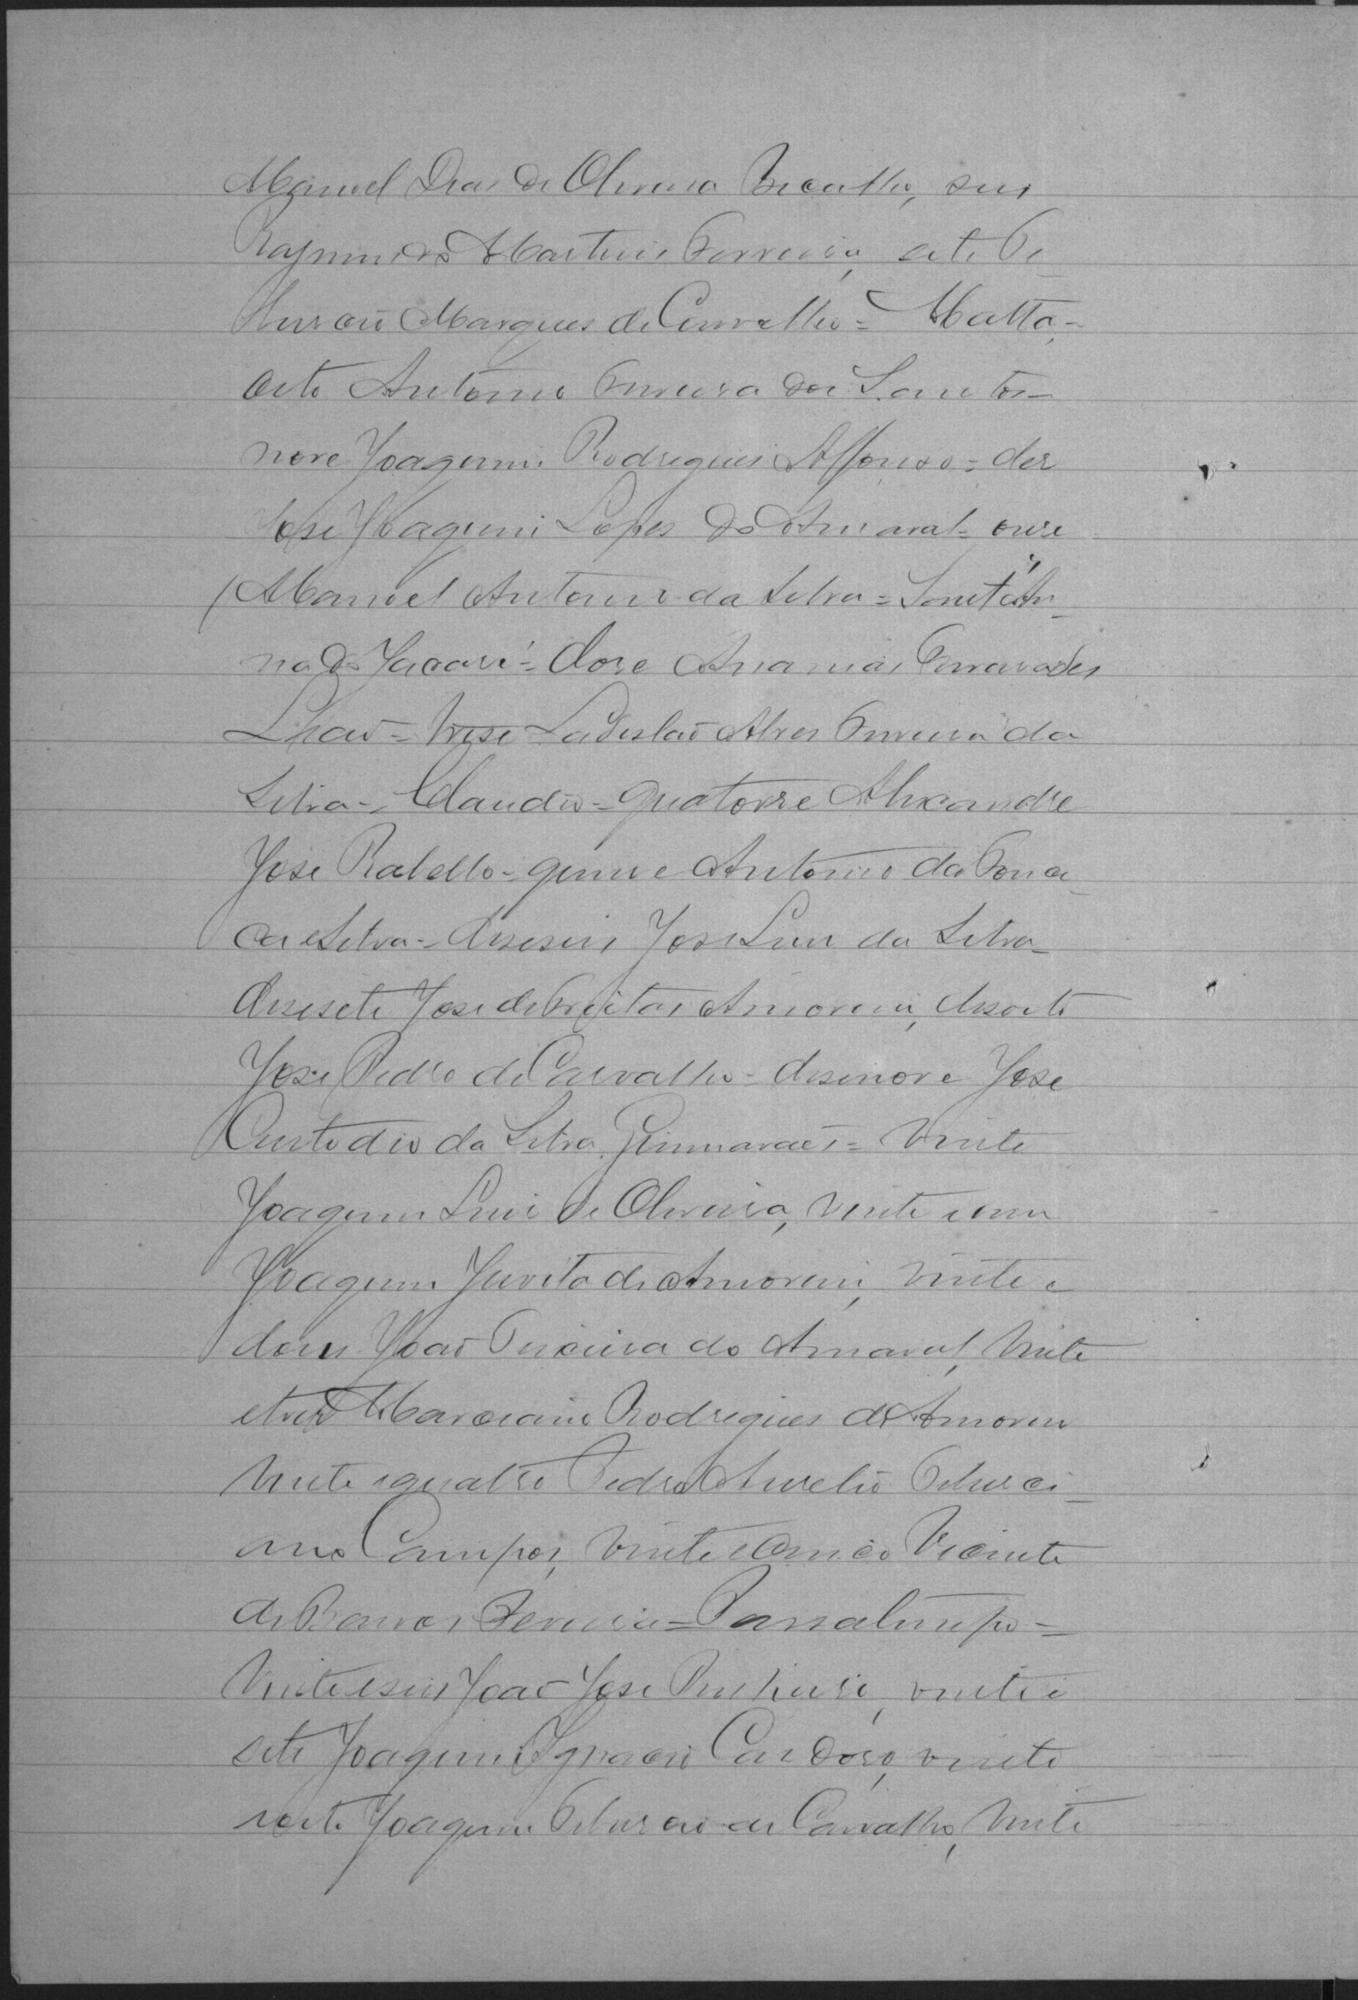 Manoel Dias de Oliveira Vicalho, seis
Raymundo Martins Ferreira, sete Ti
burcio Marques de Carvalho = Matta, =
oito Antonio Ferreira dos Santos =
nove Joaquim Rodrigues Affonso = dez
José Joaquim Lopes do Amaral = onze
Manoel Antonio da Silva = Sant'An
na do Jacaré = dose Ananias
Leão = trese Ladislao Alves Ferreira da
Silva =, Claudio = quatorze Alexandre
José Rabello = quinse Antonio da
ca e Silva = deseseis José Luis da Silva =
desesete José de Freitas Amorim, desoito
José Pedro de Carvalho = desenove José
Custodio da Silva Guimaraes = vinte
Joaquim Luis de Oliveira, vinte e um
Joaquim de Amorim, vinte e
dous João Teixeira do Amaral, vinte
e tres Marciano Rodrigues de Amorim
vinte e quatro Pedro Aurelio Tiburci
ano Campos, vinte e cinco Vicente
de Barros Pereira = Passatempo =
vinte e seis João José Pinheiro, vinte e
sete Joaquim Ignacio Cardoso, vinte
e oito Joaquim Tiburcio de Carvalho, vinte